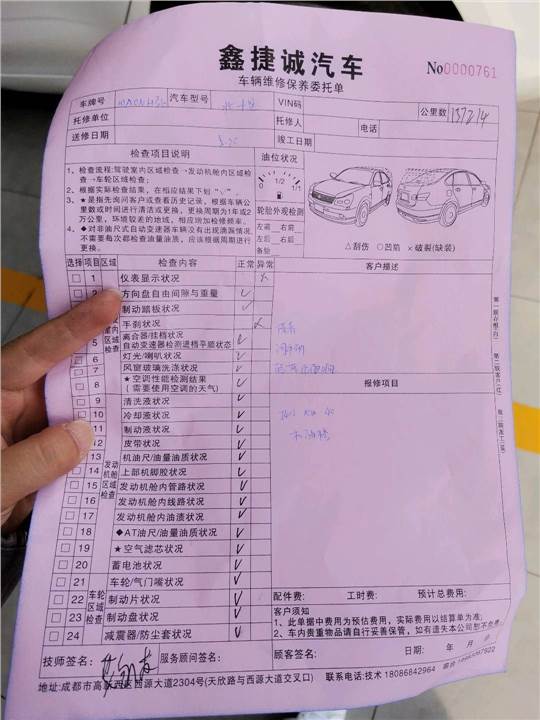 鑫捷诚汽车
车辆维修保养委托单
No0000761
车牌号 汽车型号 VIN码 公里数 137214
托修单位 托修人 电话
送修日期 竣工日期
检查项目说明
1、检查流程:驾驶室内区域检查→发动机舱内区域检查→车轮区域检查;
2、根据实际检查结果,在相应结果下划“√”。
3、★是指先询问客户或查看历史记录,根据车辆公里数或时间进行清洁或更换,更换周期为1年或2万公里,环境较差的地域,相应增加检修频率。
4、◆对非油尺式自动变速器车辆没有出现滴漏情况不需要每次都检查油量油质,应该根据周期进行更换。
油位状况
0 1/2 1/1
轮胎外观检测
左前 右前
左后 右后
备胎
△刮伤 ○凹陷 ×破裂(缺装)
选择 项目 区域 检查内容 正常 异常
1 仪表显示状况 ×
2 方向盘自由间隙与重量 √
制动踏板状况 √
手刹状况 ×
5 离合器/挂档状况
自动变速器检测进档平顺状态 √
6 灯光/喇叭状况 √
7 风窗玻璃洗涤状况 √
8 ★空调性能检测结果
(需要使用空调的天气) √
9 清洗液状况 √
10 冷却液状况 √
11 制动液状况 √
12 皮带状况 √
13 机油尺/油量油质状况 √
14 上部机脚胶状况 √
15 发动机舱内管路状况 √
16 发动机舱内线路状况 √
17 发动机舱内油渍状况 √
18 ◆AT油尺/油量油质状况 √
19 ★空气滤芯状况 √
20 蓄电池状况 √
21 车轮/气门嘴状况 √
22 制动片状况 √
23 制动盘状况 √
24 减震器/防尘套状况 √
室内区域检查
发动机舱区域检查
车轮区域检查
客户描述
报修项目
配件费: 工时费: 预计总费用:
客户须知
1、此单据中费用为预估费用,实际费用以结算单为准;
2、车内贵重物品请自行妥善保管,如有遗失本公司恕不负责
技师签名: 服务顾问签名: 顾客签名: 日期: 年 月
地址:成都市高新西区西源大道2304号(天欣路与西源大道交叉口) 联系电话:技术 18086842964